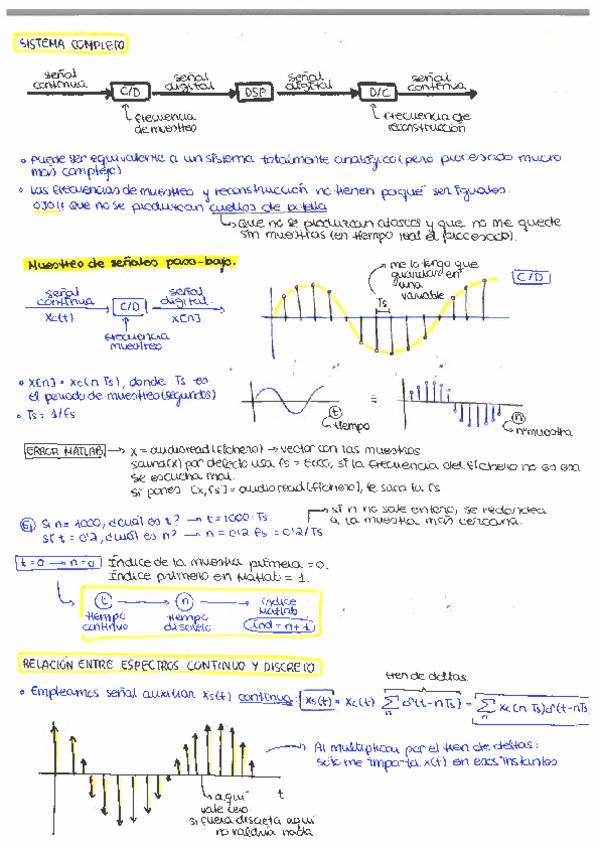 SISTEMA COMPLETO
señal continua → C/D → señal digital → DSP → señal digital → D/C → señal continua
frecuencia de muestreo
frecuencia de reconstrucción
• Puede ser equivalente a un sistema totalmente analógico (pero procesado mucho
más complejo)
• Las frecuencias de muestreo y reconstrucción no tienen porqué ser iguales.
OJO!! Que no se produzcan cuellos de botella
→ Que no se produzcan atascos y que no me quede
sin muestras (en tiempo real el procesado).
Muestreo de señales paso-bajo.
señal continua xc(t) → C/D → señal digital x[n]
frecuencia muestreo
me lo tengo que
guardar en
una
variable
Ts
C/D
• x[n] = xc(nTs), donde Ts es
el periodo de muestreo (segundos)
• Ts = 1/fs
t
tiempo
≡
n
nº muestra
ERROR MATLAB → x = audioread(fichero) → vector con las muestras
sound(x) por defecto usa fs = 8000, si la frecuencia del fichero no es esa
se escucha mal.
si pones [x,fs] = audioread(fichero), te saca la fs
Ej Si n = 1000, ¿cuál es t? → t = 1000·Ts
si t = 0'2, ¿cuál es n? → n = 0'2·fs = 0'2/Ts
→ si n no sale entero, se redondea
a la muestra más cercana.
t=0 → n=0 Índice de la muestra primera = 0.
Índice primero en Matlab = 1.
t → n → índice Matlab
tiempo continuo
tiempo discreto
ind = n+1
RELACIÓN ENTRE ESPECTROS CONTINUO Y DISCRETO
tren de deltas.
• Empleamos señal auxiliar xs(t) continua: xs(t) = xc(t) Σn δ(t-nTs) = Σn xc(nTs)δ(t-nTs
Al multiplicar por el tren de deltas:
solo me importa x(t) en esos instantes
t
→ aquí
vale cero
si fuera discreta aquí
no valdría nada